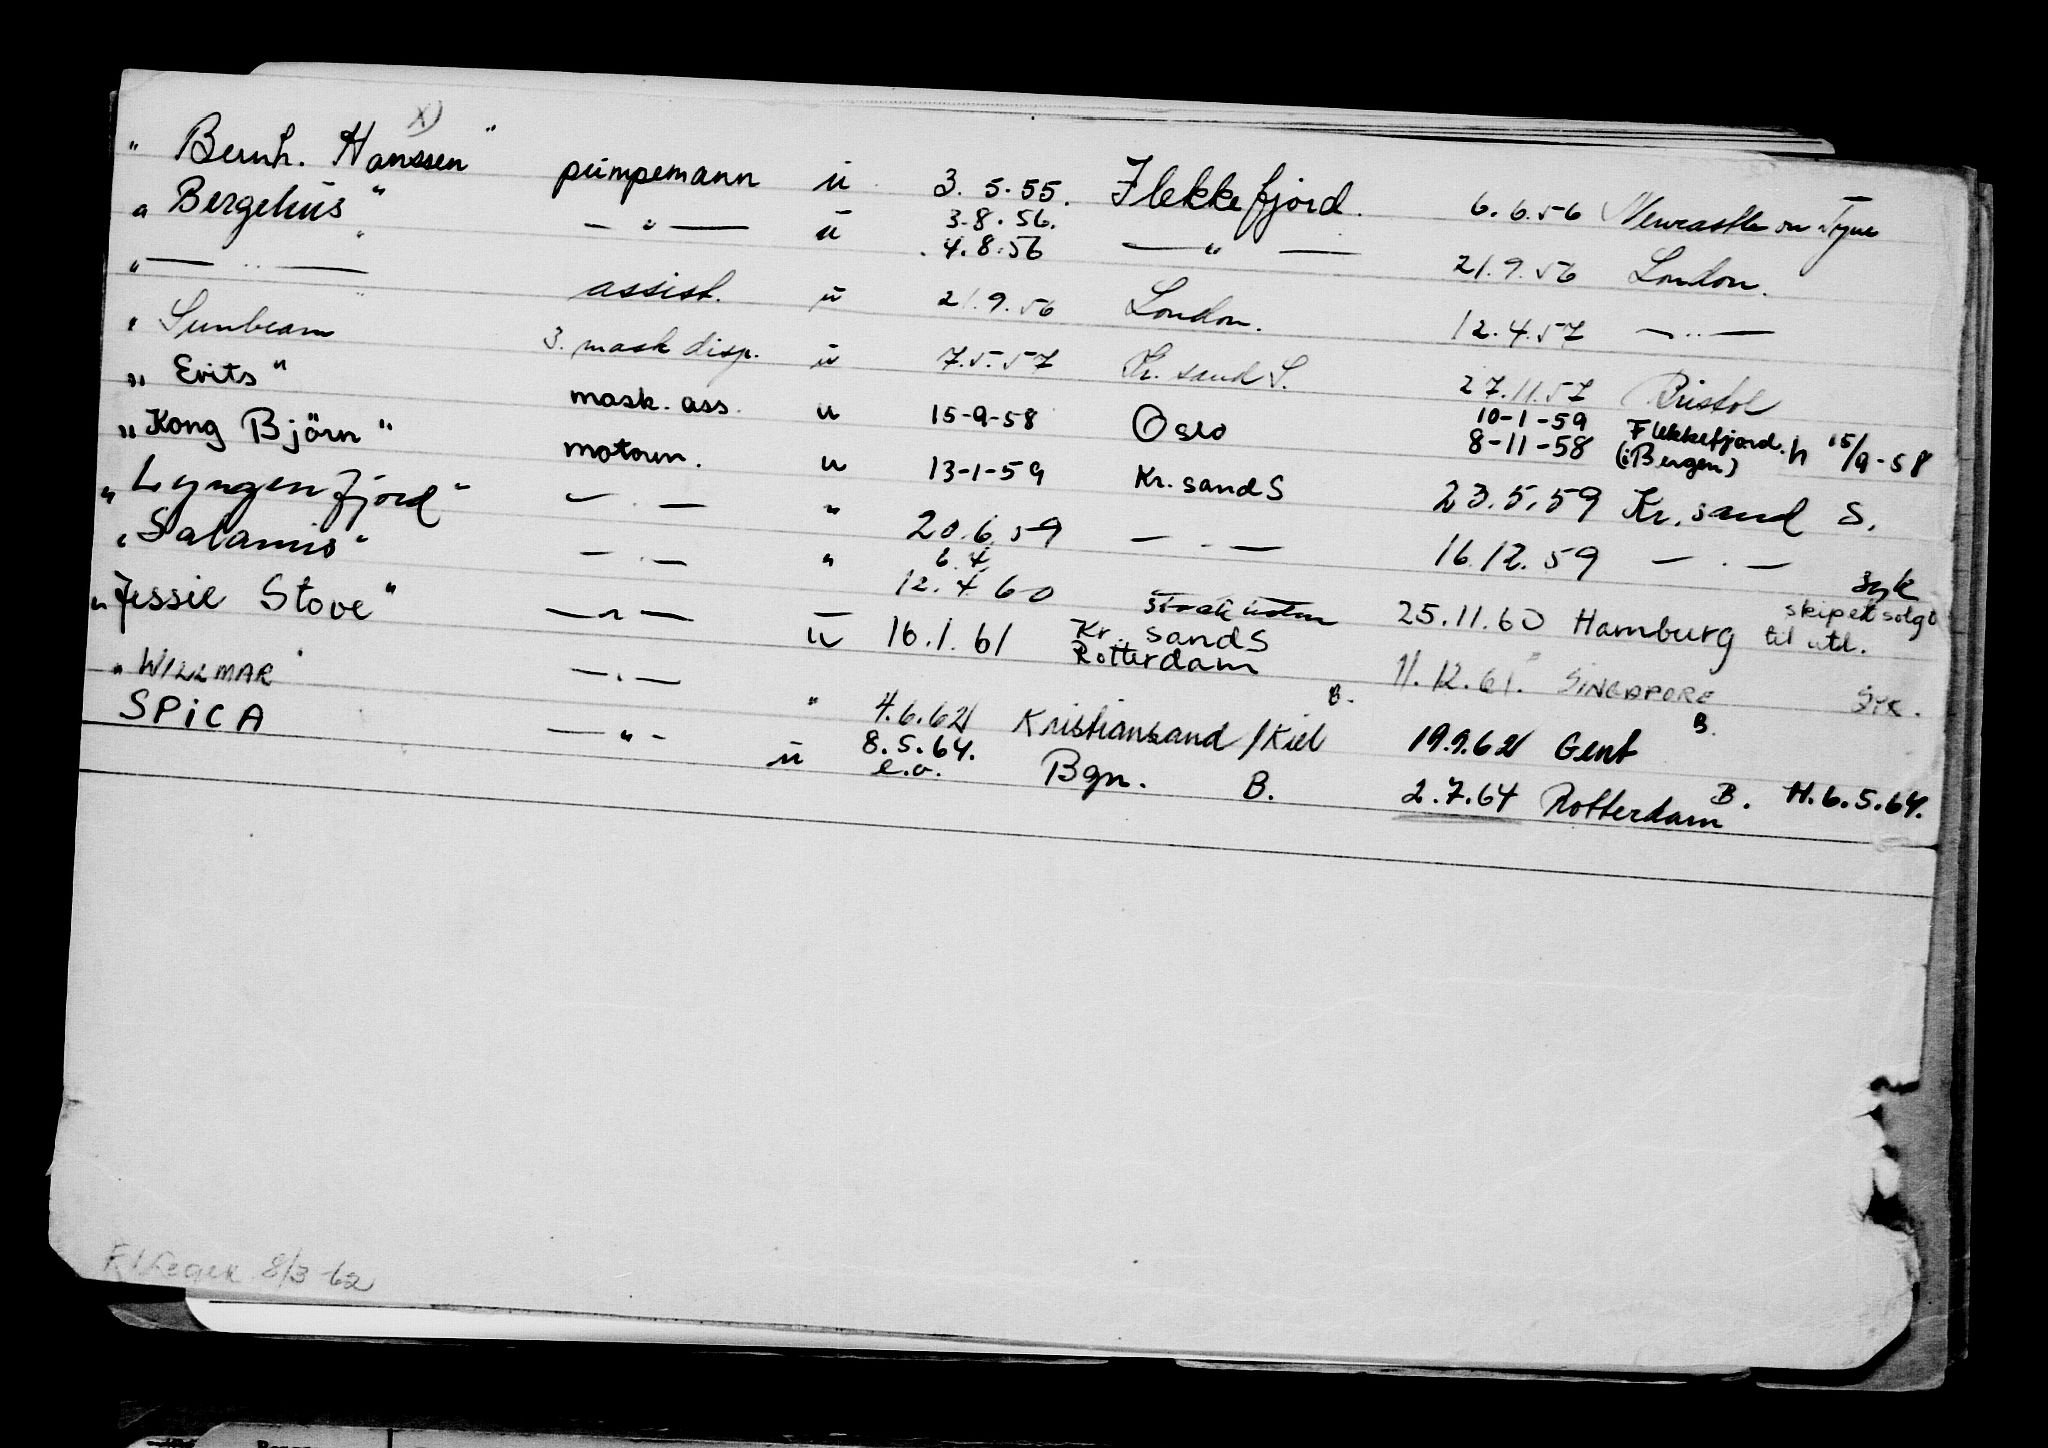 x)
" Bernh. Hanssen " pumpemann u 3.5.55. Flekkefjord. 6.6.56 Newcastle on Tyne
" Bergehus " — " — u 3.8.56. 4.8.56 — " — 21.9.56 London.
" — " — " assist. u 21.9.56 London. 12.4.57 — " —
" Sunbeam 3. mask disp. u 7.5.57 Kr. sand S. 27.11.57 Bristol
" Erits " mask. ass. u 15-9-58 Oslo 10-1-59 8-11-58 Flekkefjord. (i Bergen) h 15/9-58
" Kong Björn " motorm. u 13-1-59 Kr. sand S 23.5.59 Kr. sand S.
" Lyngenfjord " — " — " 20.6.59 — " — 16.12.59 — " — syk
" Salamis " — " — " 6.4. 12.4.60 25.11.60 Hamburg skipet solgt til utl.
" Jessie Stove " — " — u 16.1.61 Kr. sand S Rotterdam 11.12.61. SINGAPORE SYK.
" WILLMAR " — " — " 4.6.62 Kristiansand / Kiel B. 19.9.62 Gent B.
SPICA — " — u 8.5.64. e.o. Bgn. B. 2.7.64 Rotterdam B. H.6.5.64.
8/3-62